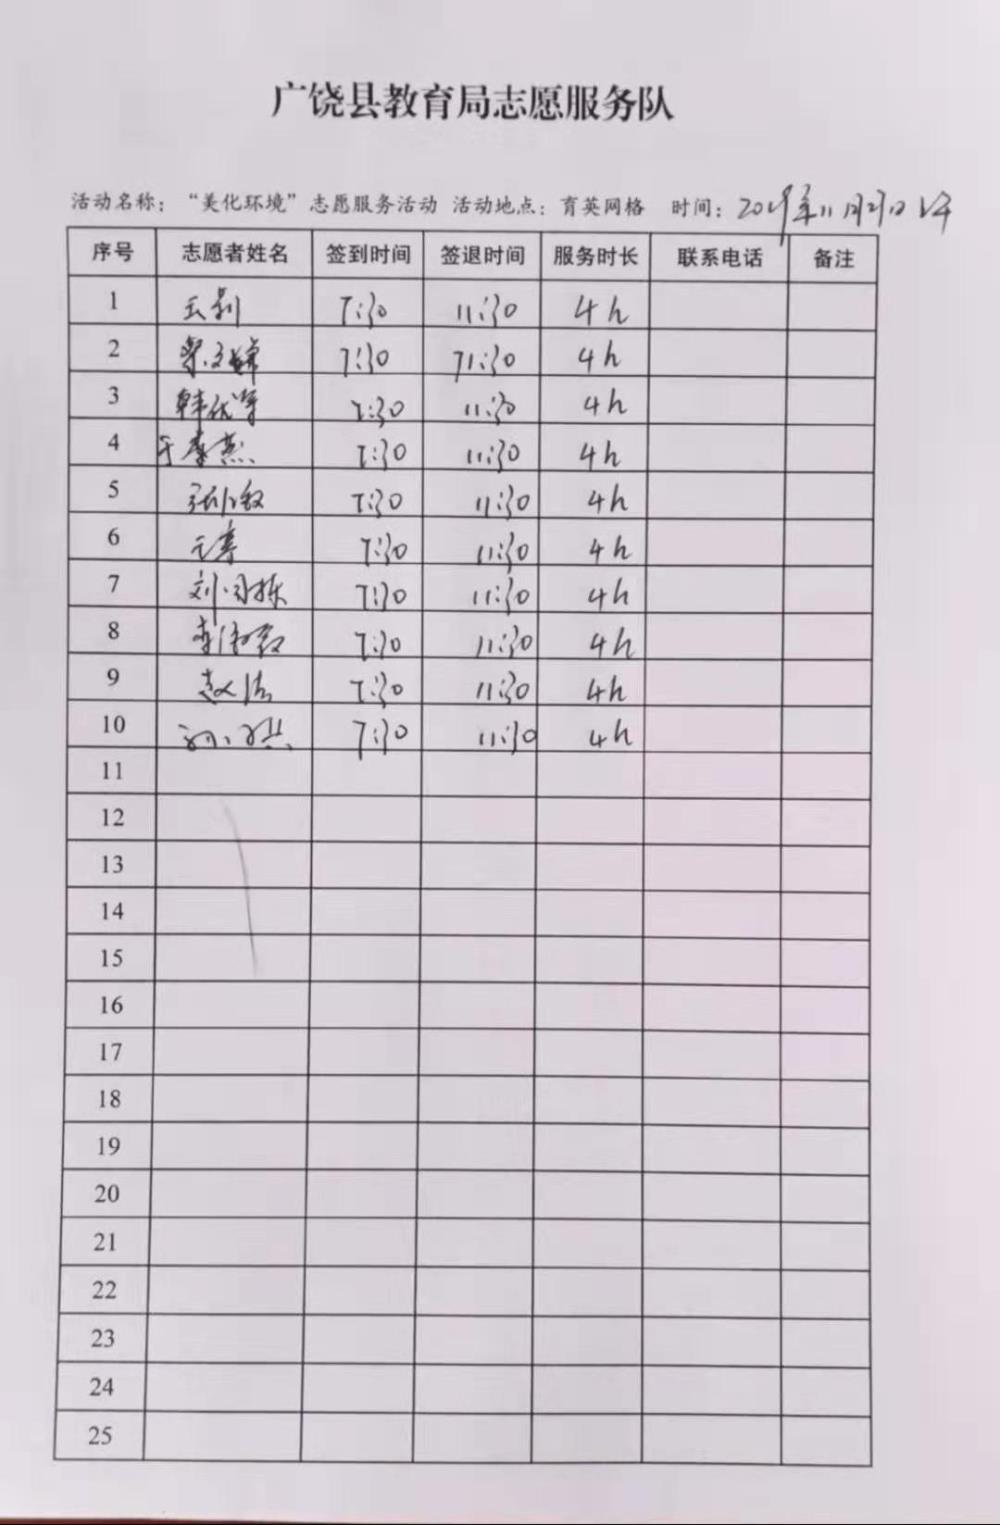 广饶县教育局志愿服务队
活动名称：“美化环境”志愿服务活动 活动地点：育英网格 时间：
序号 志愿者姓名 签到时间 签退时间 服务时长 联系电话 备注
1 7:30 11:30 4h
2 7:30 11:30 4h
3 7:30 11:30 4h
4 7:30 11:30 4h
5 7:30 11:30 4h
6 7:30 11:30 4h
7 7:30 11:30 4h
8 7:30 11:30 4h
9 赵洁 7:30 11:30 4h
10 7:30 11:30 4h
11
12
13
14
15
16
17
18
19
20
21
22
23
24
25